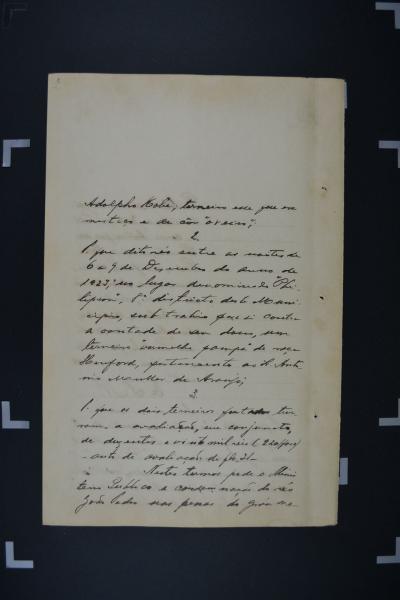 Adolpho, terneiro esse que era
mestiço e de côr "oveiro";
2.
P. que dito réo entre as noites de
6 a 9 de Dezembro do anno de
1923, no lugar denominado "Phi-
lipson", 8º districto deste Muni-
cipio, subtrahio para si contra
a vontade de seu dono, um
terneiro "vermelho pampa" de raça
Hereford, pertencente ao Sr. Anto-
nio de Araujo;
3.
P. que os dois terneiros furtados ti-
veram a avaliação, em conjuncto,
de duzentos e vinte mil reis (220$000)
- auto de avaliação de fls.
Nestes termos pede o Minis-
terio Publico a condemnação do réo
João nas penas do gráo